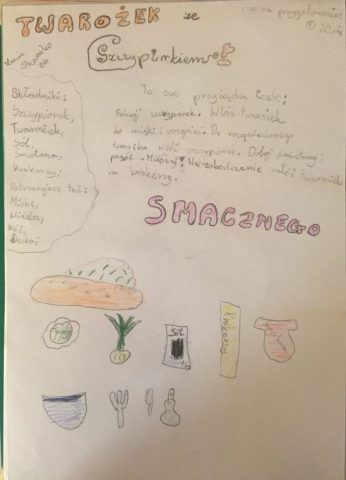 TWAROŻEK ze
Szczypiorkiem
Czas przygotowania
20 min
Składniki:
Szczypiorek,
Twarożek,
Sól,
Śmietana,
Krakersy.
Potrzebujesz też:
Miska,
Widelec,
Nóż,
To się przyrządza tak:
Pokrój szczypiorek. Włóż twarożek
do miski i rozgnieć. Do rozgniecionego
twarożku włóż szczypiorek. Dodaj śmietanę i
posól. Mieszaj! Na zakończenie nałóż twarożek
na krakersy.
SMACZNEGO
Sól
Krakersy